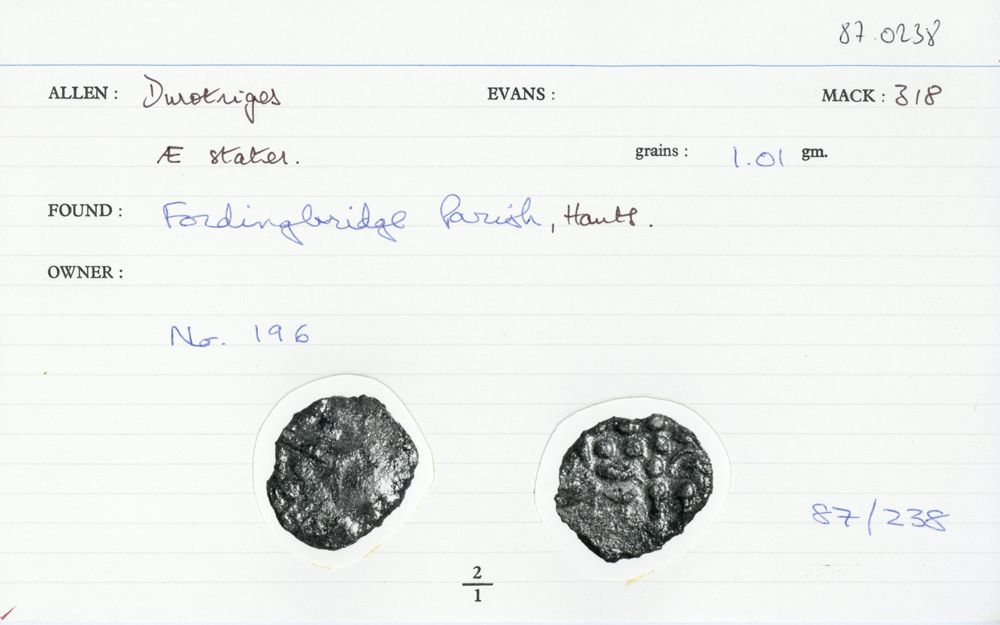 87.0238
ALLEN : Durotriges EVANS : MACK : 318
Æ stater. grains : 1.01 gm.
FOUND : Fordingbridge Parish, Hants.
OWNER :
No. 196
87/238
2
1